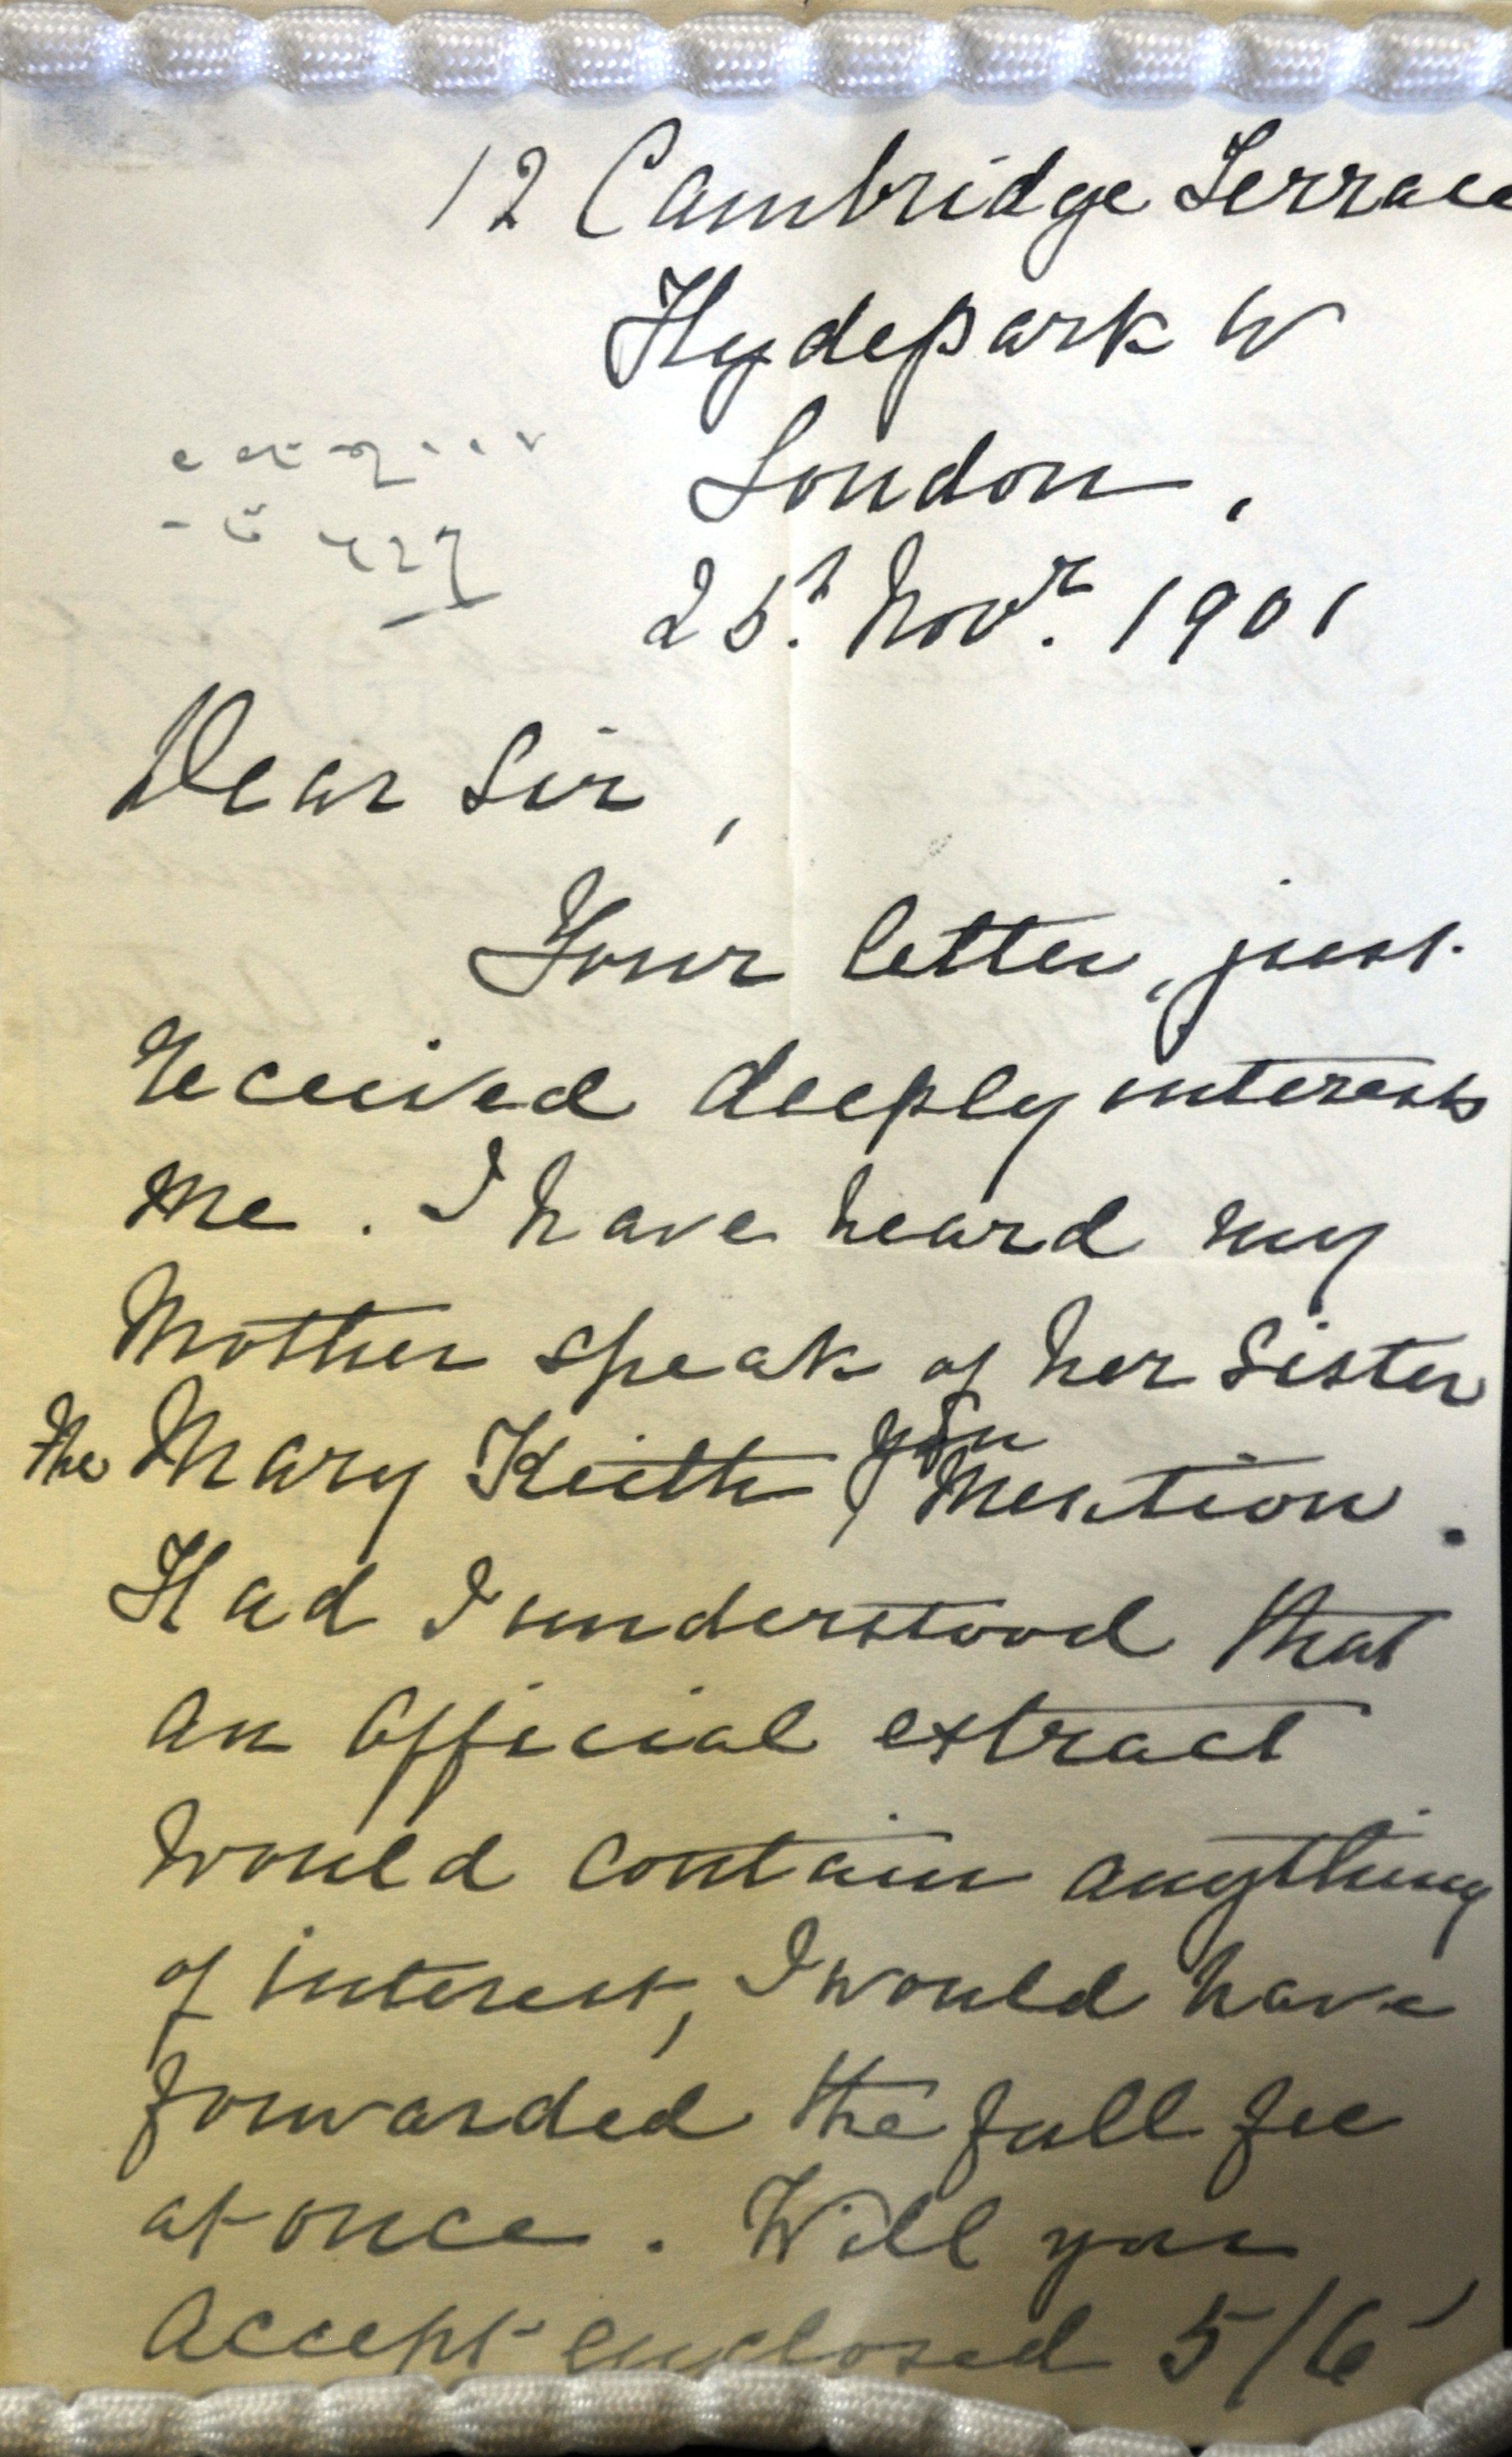 12 Cambridge Terrace
Hydepark W
London,
25t. Novr. 1901
Dear Sir,
Your letter, just
received deeply interests
me. I have heard my
Mother speak of her Sister
the Mary Keith you mention.
Had I understood that
an official extract
would contain anything
of interest, I would have
forwarded the full fee
at once. Will you
accept enclosed 5/6